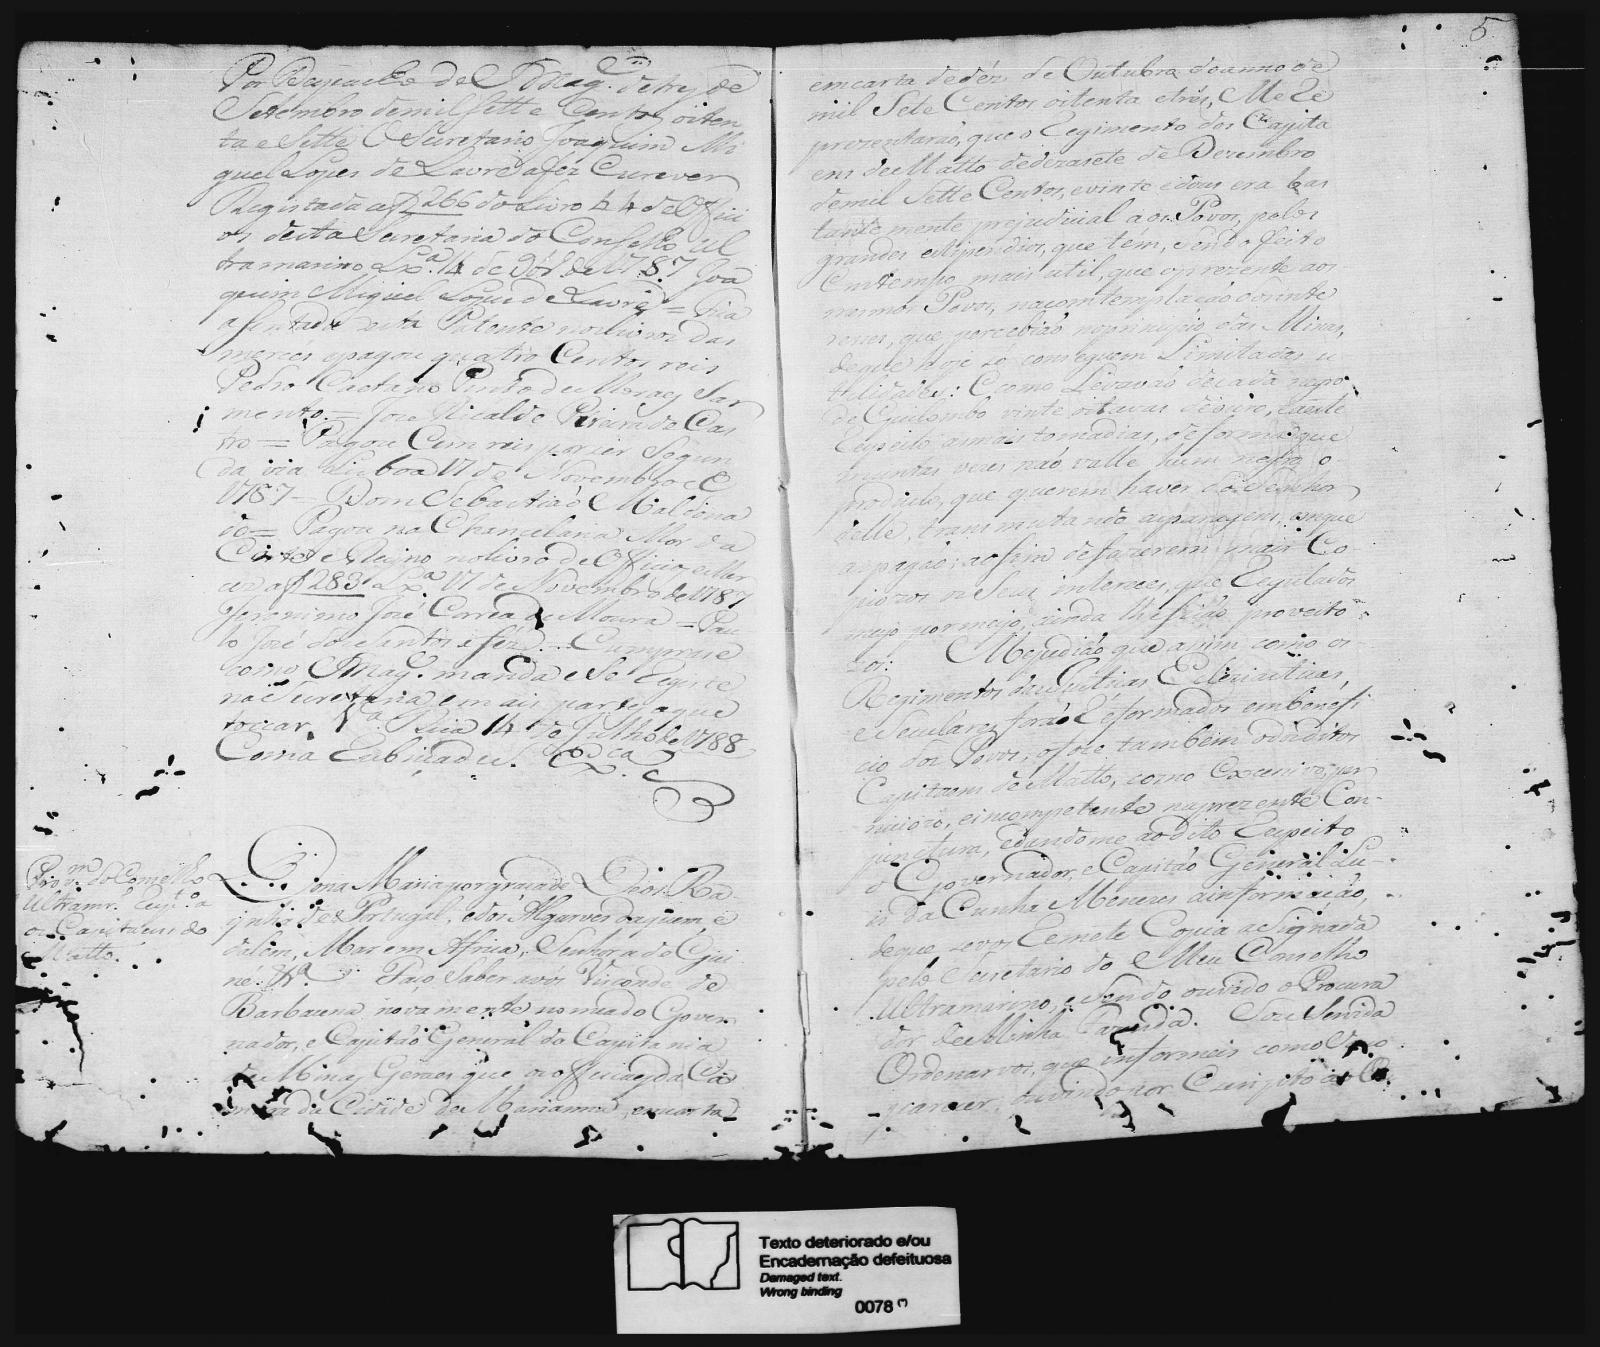 Por Despacho de S Mag.e de trez de
Setembro de mil sette Centos oiten
ta e Sette O Secretario Joaquim Mi
guel Lopes de Lavre a fez Escrever
Registada a f 266 do Livro 44 de Offici
os desta Secretaria do Conselho Ul
tramarino Lx.a 14 de 9br.o de 1787 Joa
quim Miguel Lopes de Lavre = Fica
asentada esta Patente no livro das
mercês epagou quatro Centos reis
Pedro Caetano Pinto de Moraes Sar
mento = Joze Ricalde Pereira de Cas
tro = Pagou Cem reis por ser Segun
da via Lisboa 17 de Novembro de
1787 = Dom Sebastião Maldona
do = Pagou na Chancelaria Mor da
Corte e Reino nolivro de Officios e Mer
ces a f 283 Lx.a 17 de Novembro de 1787
Jeronimo José Correa de Moura = Pau
lo José dos Santos a fez = Cumprase
como S Mag.e manda e Se Registe
na Secretaria e mais partes a que
tocar V.a Rica 14 de Julho de 1788
Com a Rubrica de S. Ex.ca
Prov.m do Conselho
Ultramr.
os Capitaens do
Matto.
Dona Maria por graça de Deos Ra
ynha de Portugal, e dos Algarves daquem, e
dalem, Mar em Africa, Senhora de Gui
né. &.a Faço Saber a vós Visconde de
Barbacena novamente nomeado Gover
nador, e Capitão General da Capitania
de Minas Geraes que os officiaes da Ca
mara da Cidade de Marianna, em carta
5
em carta de dés de Outubro do anno de
mil Sete Centos oitenta e trés, Me Re
prezentarão, que o Regimento dos Capita
ens de Matto de dezasete de Dezembro
de mil Sette Centos, e vinte e dous era bas
tante mente prejudicial aos Povos, pelos
grandes estipendios, que tem, sendo feito
Em tempo mais util, que o prezente aos
mesmos Povos, na comtemplação dos inte
resses, que percebião no principio das Minas,
de que hoje se conseguem Limitadas u
tilidades: E como Levavão de cada negro
de Quilombo vinte oitavas de ouro, e a este
Respeito as mais tomadias, de forma que
muntas vezes não valle hum negro o
producto, que querem haver do Senhor
delle, transmutando as paragens, em que
as pagão; a o fim de fazerem mais Co-
piozos os Seus interces, que Regulados
meyo por meyo, ainda lhe Serião proveito-
zos: Me pedião que asim como os
Regimentos das Justiças Ecleziasticas,
e Seculares forão Reformados em benefi
cio dos Povos, o foce tambem o dos ditos
Capitaens de Matto, como Excessivo, per
nicioso, e incompetente na prezente Con-
junctura, e dandome ao dito Respeito
o Governador, e Capitão General Lu-
is da Cunha Menezes a informação,
de que se vos Remete Copia asignada
pelo Secretario do Meu Conselho
Ultramarino, e Sendo ouvido o Procura
dor de Minha Fazenda. Sou Servida
Ordenarvos, que informeis com o Vosso
parecer, ouvindo por Escripto as Ca
Texto deteriorado e/ou
Encadernação defeituosa
Damaged text.
Wrong binding
0078 (*)